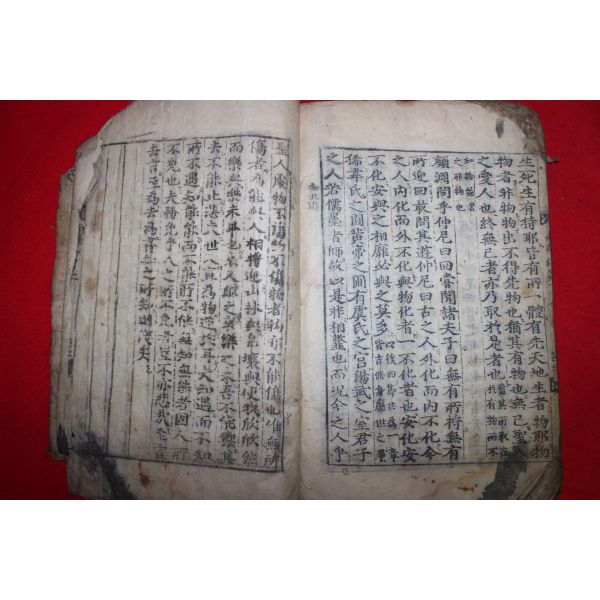 生死生有待耶皆有所一體有先天地生者物耶物
物者非物物出不得先物也猶其有物也無已聖人
之愛人也終無已者亦乃取於是者也
知物物者
之非物也
顏淵問乎仲尼曰回嘗聞諸夫子曰無有所將無有
所迎回敢問其遊仲尼曰古之人外化而內不化今
之人內化而外不化與物化者一不化者也安化安
不化安與之相靡必與之莫多
狶韋氏之圃黃帝之圃有虞氏之宮湯武之室君子
之人若儒墨者師故以是非相䪡也而況今之人乎
知北遊
聖人處物不傷物不傷物者物亦不能傷也唯無所
傷者爲能與人相將迎山林與皐壤與使我欣欣然
而樂與樂未畢也哀又繼之哀樂之來吾不能禦其
去不能止悲夫世人直爲物逆旅耳夫知遇而不知
所不遇知能能而不能所不能無知無能者固人所
不免也夫務免乎人之所不免者豈不亦悲哉至言
去言至爲去爲齊知之所知則淺矣